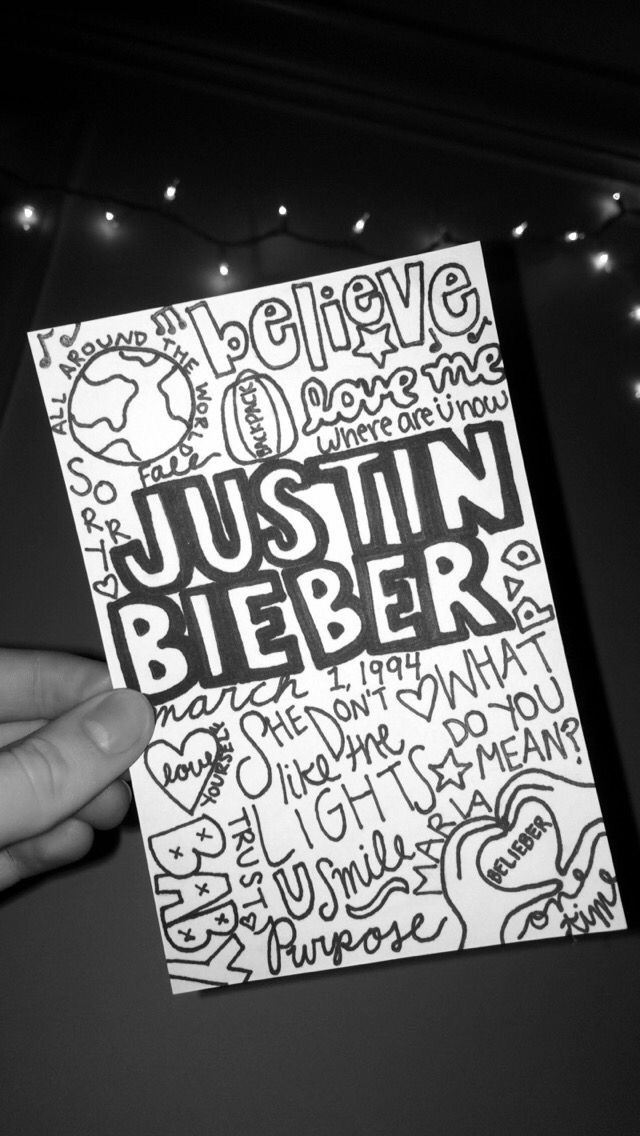 believe
ALL AROUND THE WORLD
BACKPACK
love me
where are Ü now
Fall
SORRY
JUSTIN
BIEBER
march 1, 1994
SHE DON'T
like the
LIGHTS
WHAT
DO YOU
MEAN?
love
YOURSELF
BABY
TRUST
U Smile
MARIA
BELIEBER
Purpose
one
time